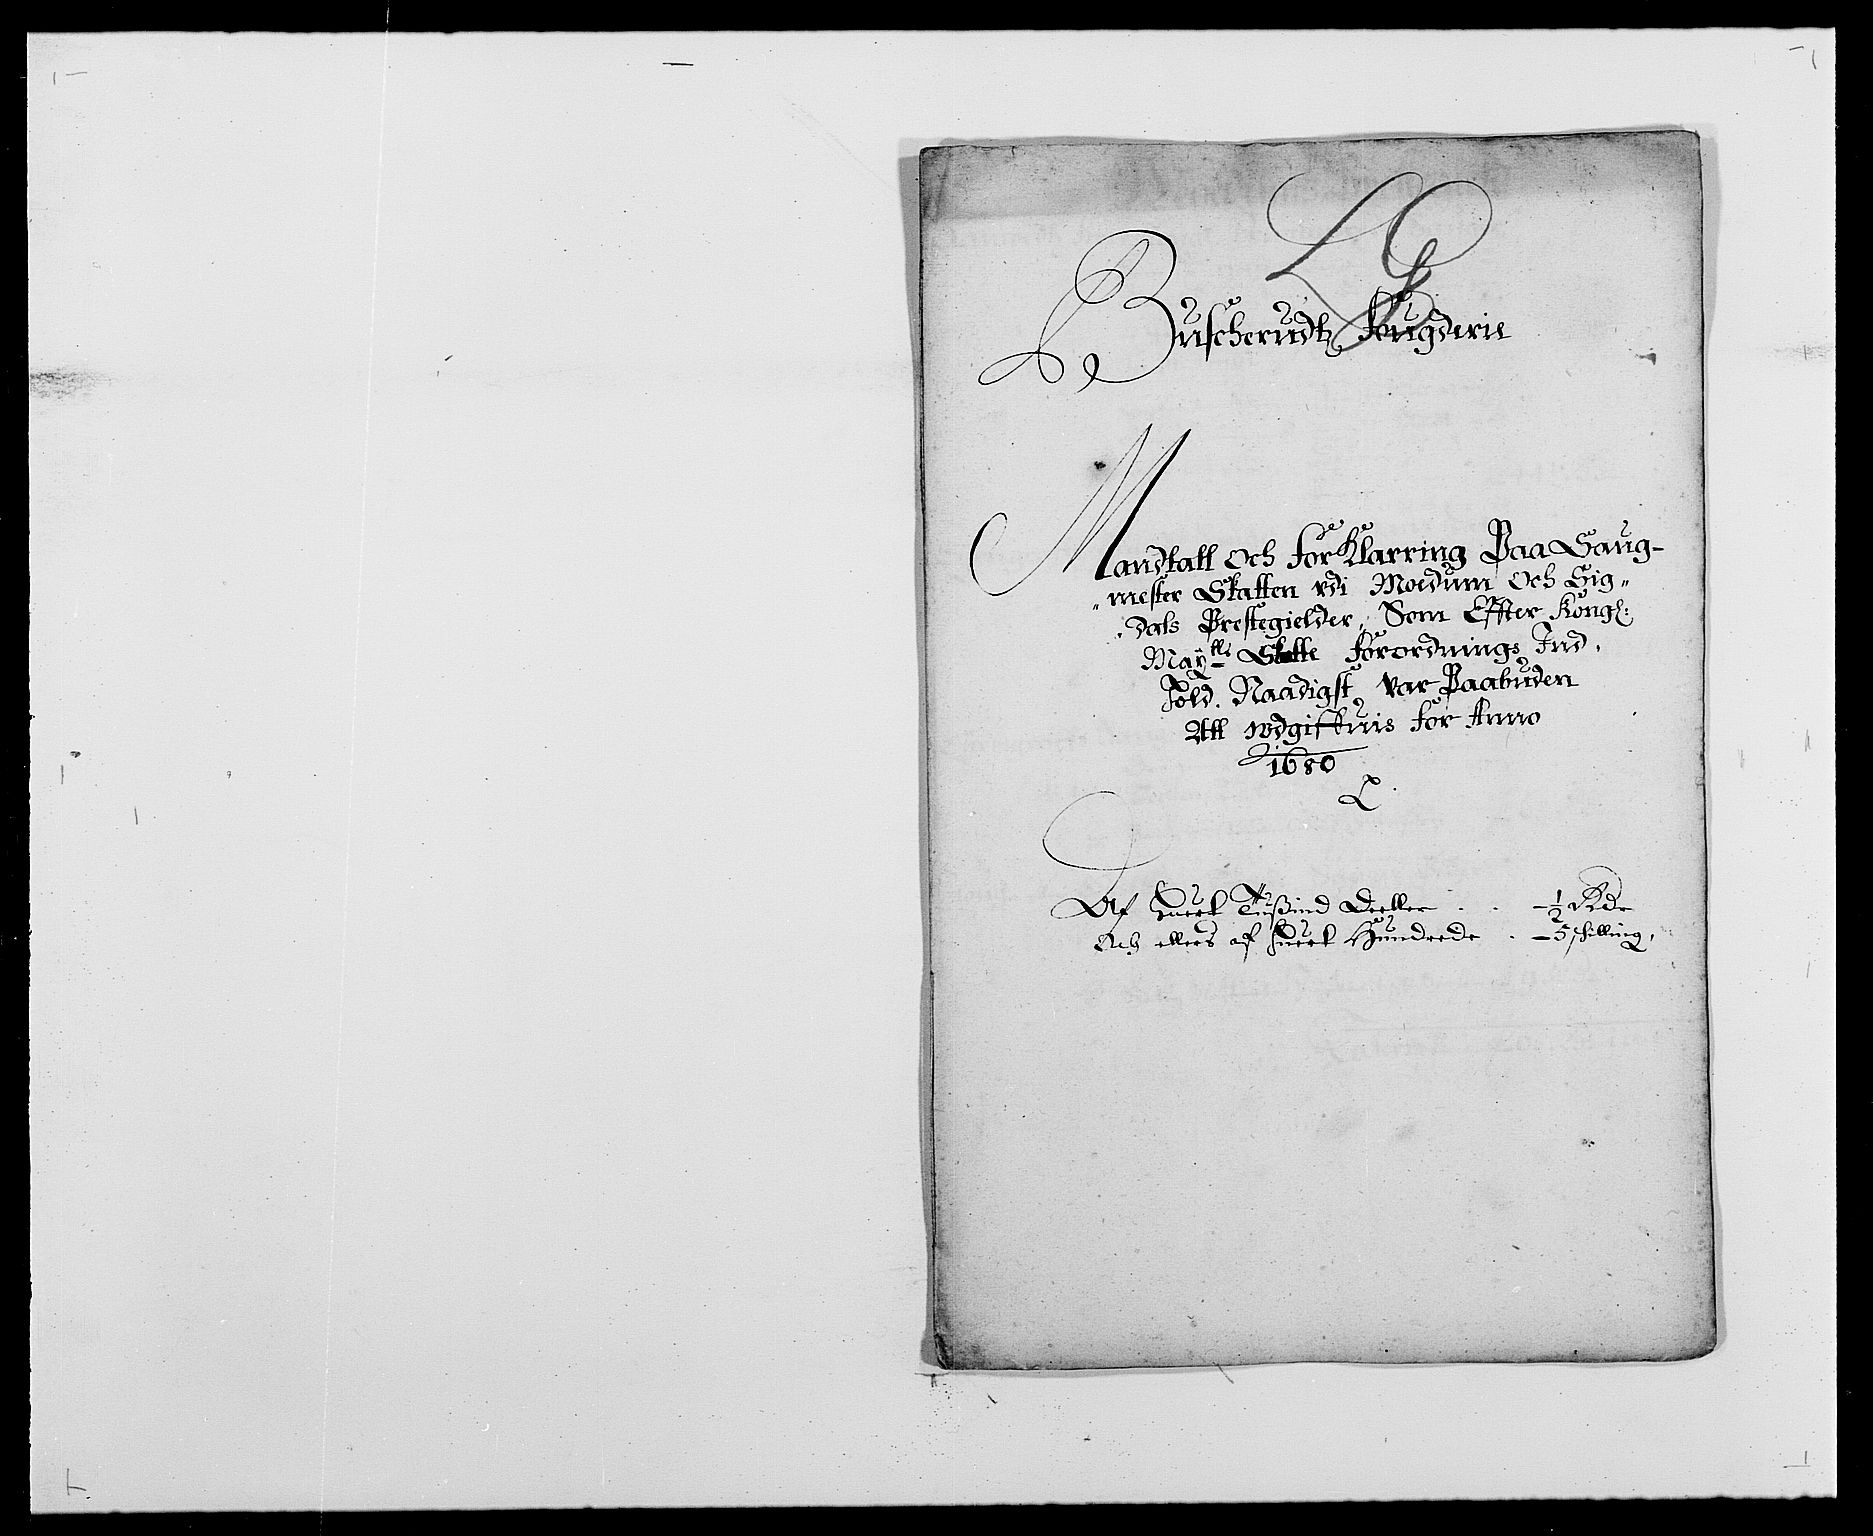 Buscherudtz fougderie
Mandtall Och forKlarring Paa Saug-
mester Skatten vdi Moedum Och Sig„
dals Prestegielder, Som Effter Kongl:
Maÿtts Skatte forordnings Ind„
hold. Naadigst var Paabuden
Att wdgifvuis for Anno
1680
Af huert Tußind Deeller . . - ½ Rdr
Och ellers af huert Hundrede . - 5 skilling,